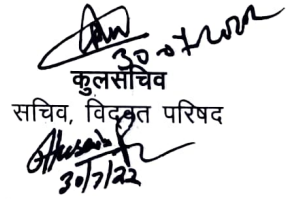 30-07-2022
कुलसचिव
सचिव, विद्वत परिषद
30/7/22